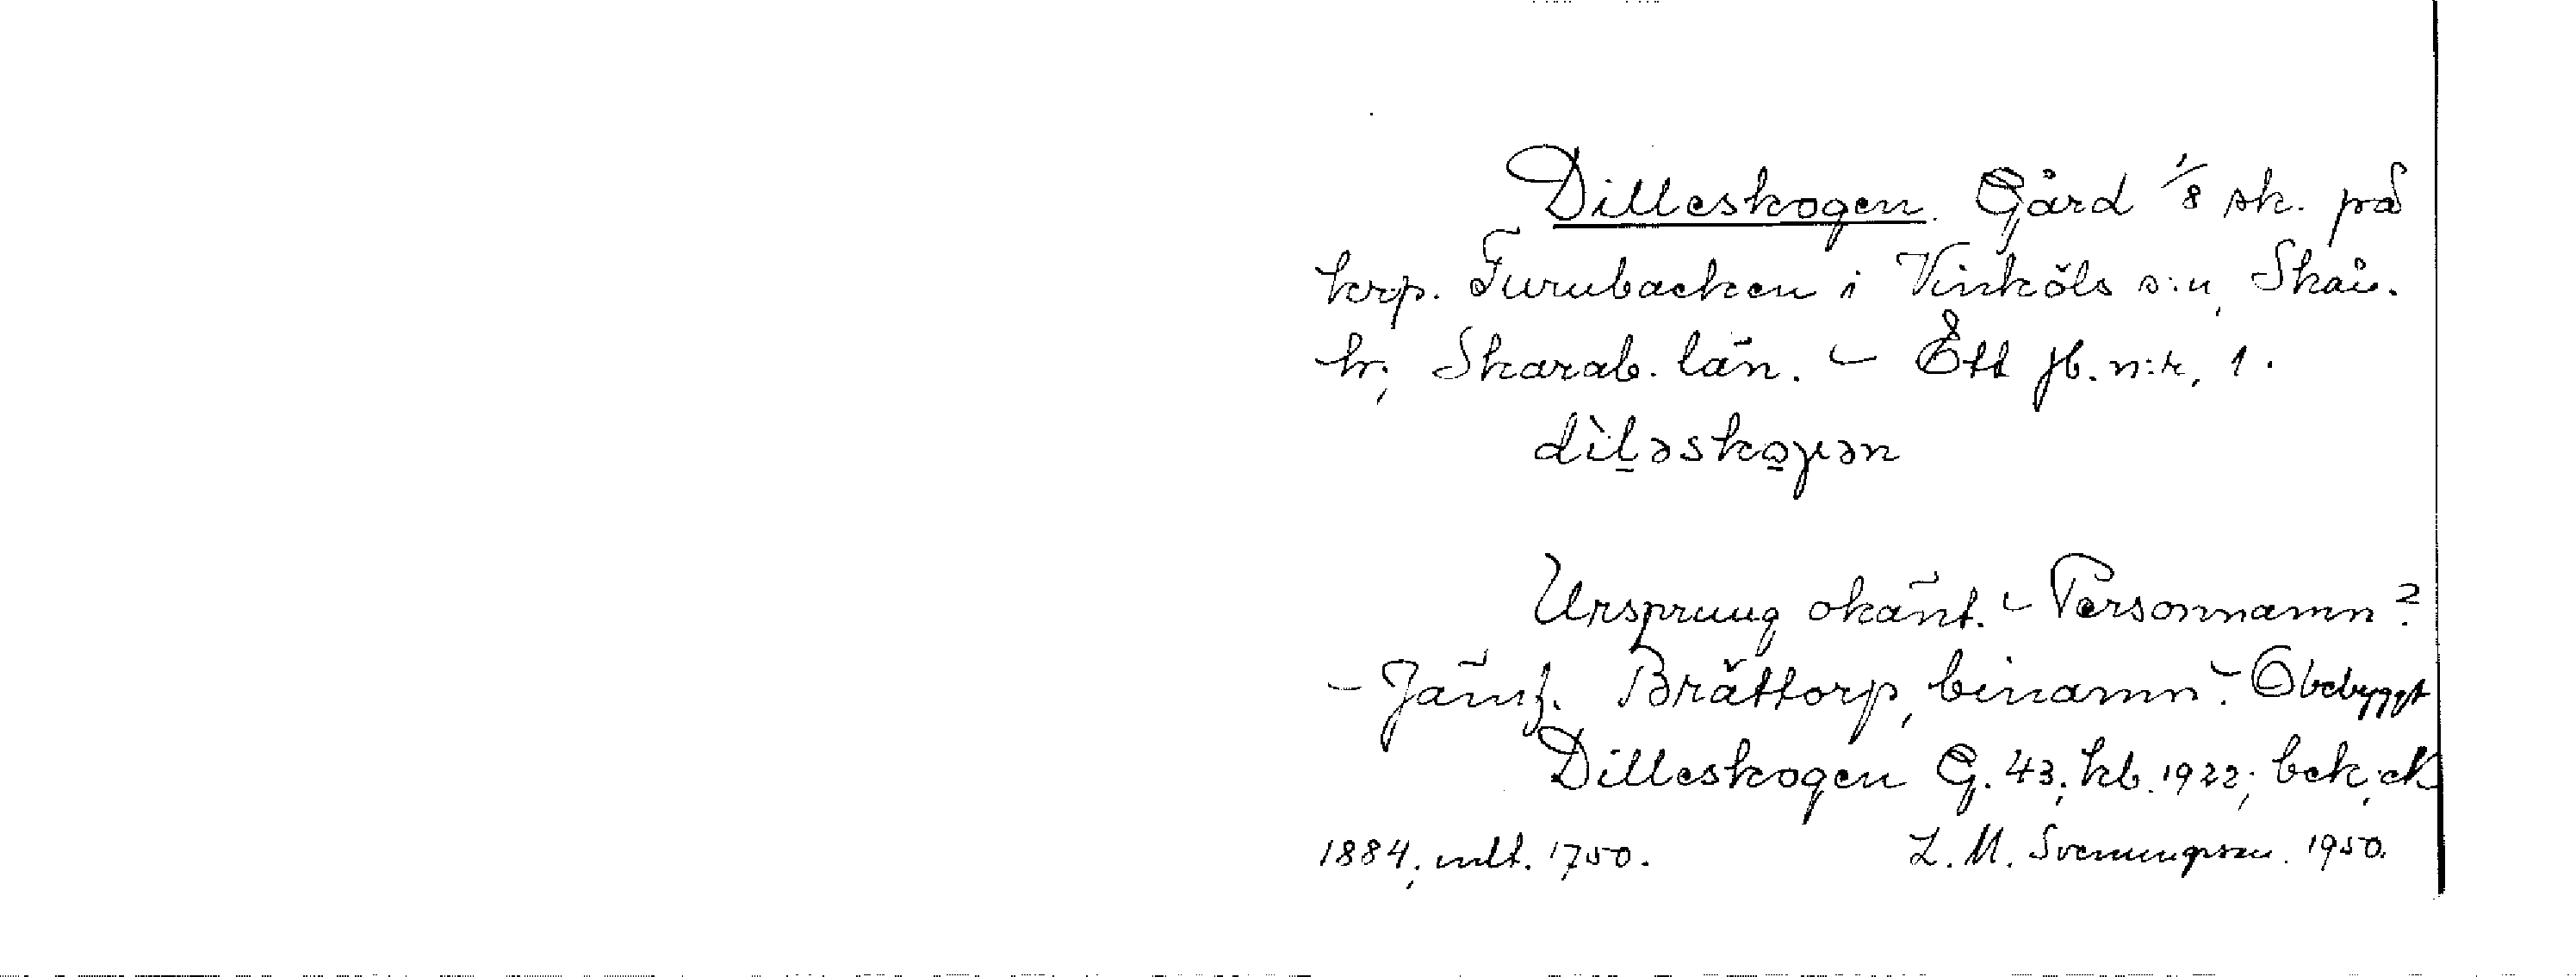 Dilleskogen. Gård 1/8 sk. på
krp. Furubacken i Vinköls s:n, Skån.
hr, Skarab. län. – Ett jb. n:r, 1.
dìləskoγən
Ursprung okänt. – Personnamn?
– Jämf. Brättorp, binamn. – Obebyggt
Dilleskogen G. 43; kb. 1922; bek, ek
1884, mlt. 1750. L. M. Svenungsson. 1950.